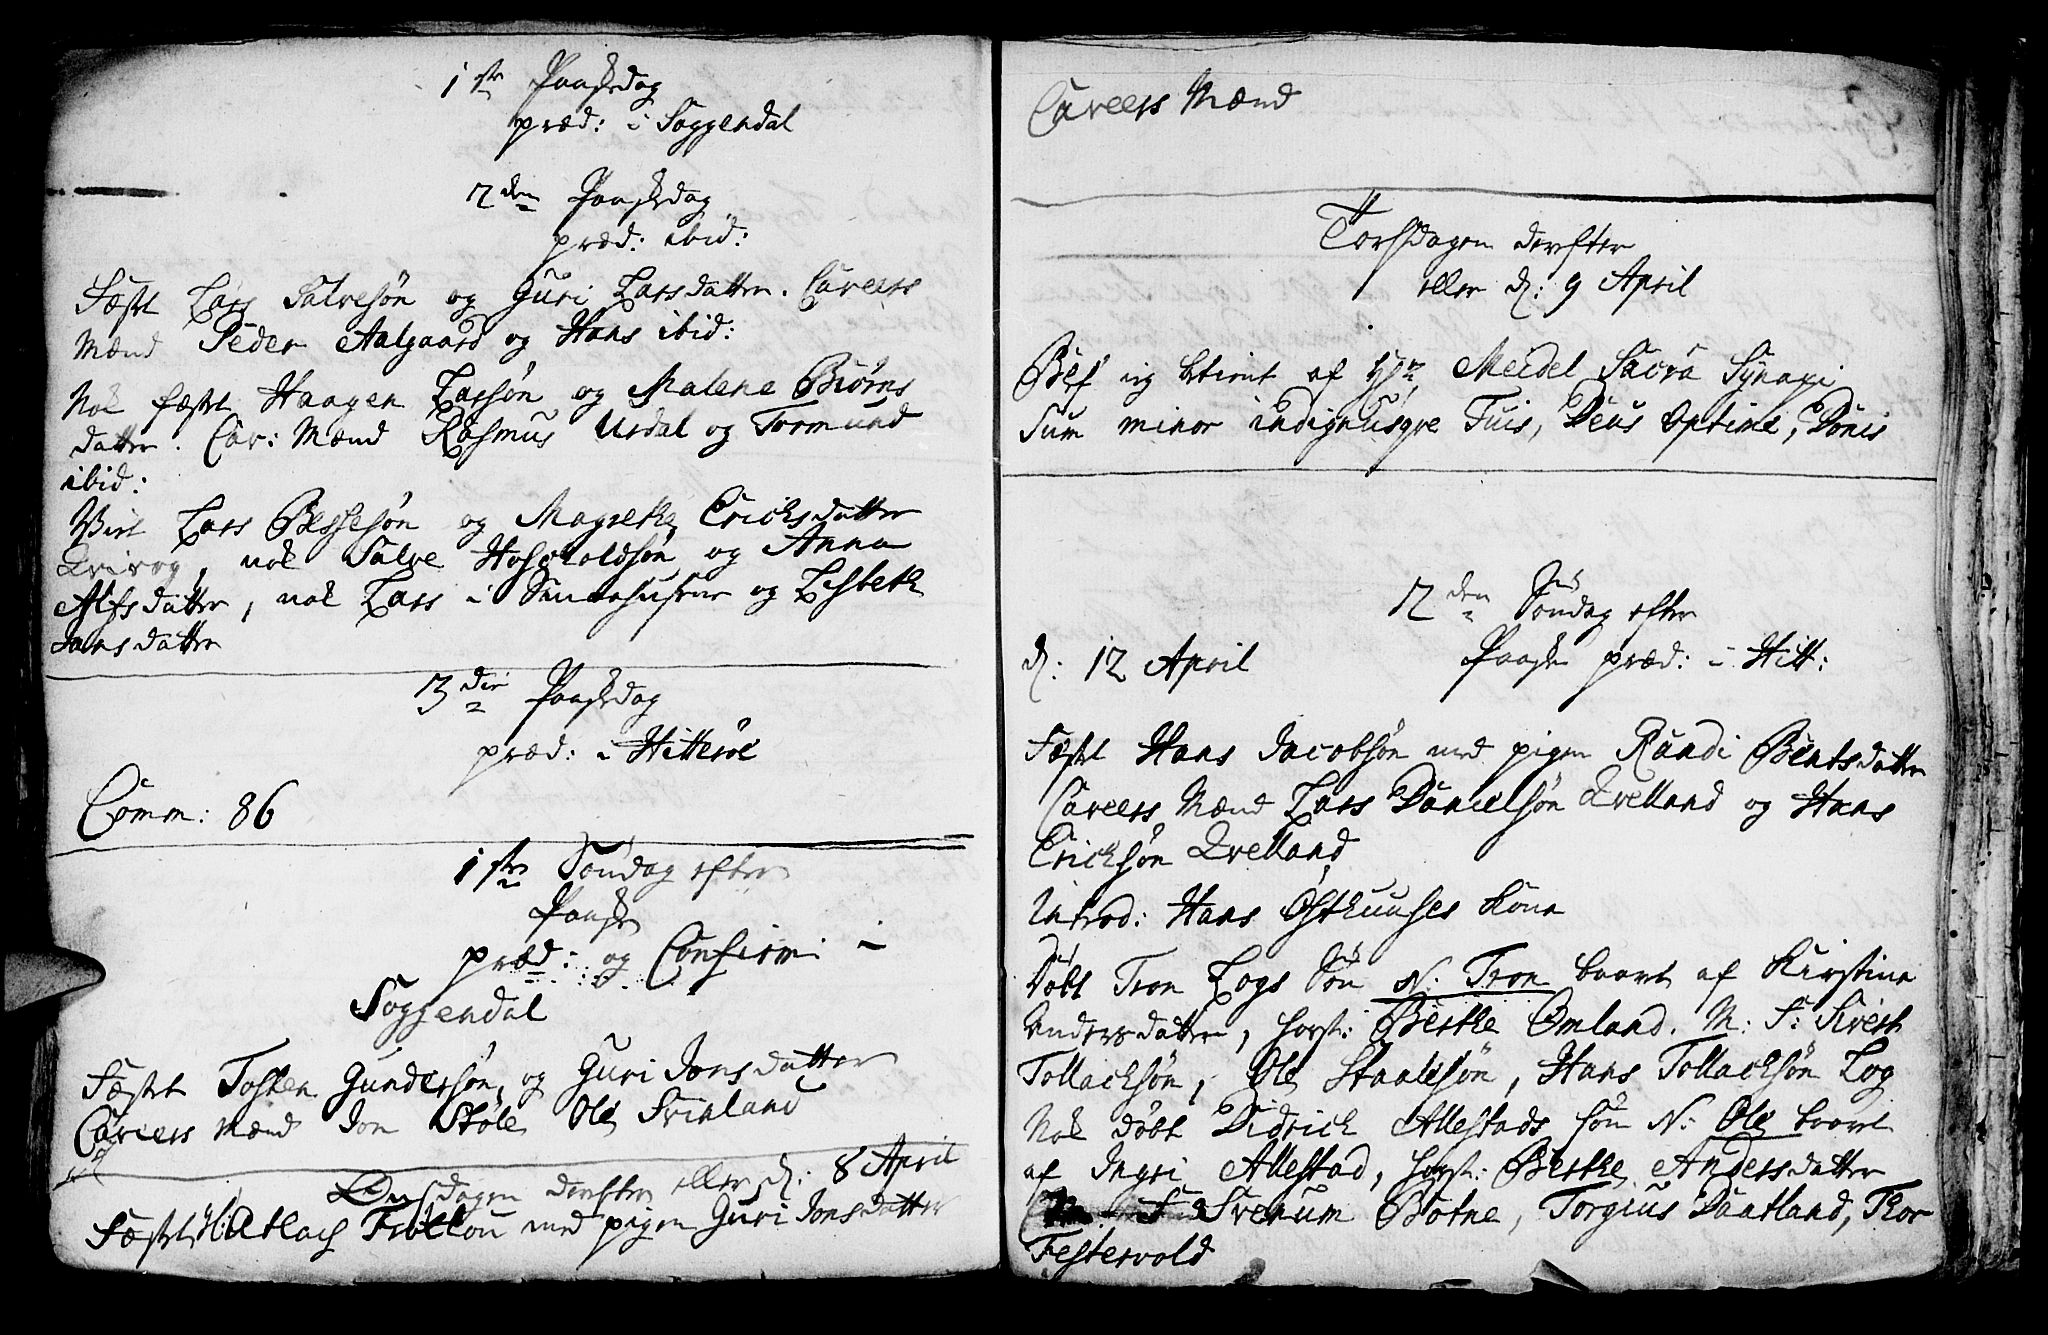 1ste Paaskedag
præd: i Soggendal
2den Paaskedag
præd: ibid:
Fæstet Lars Salvesøn og Guri Larsdatter. Caveers
Mænd Peder Aalgaard og Hans ibid:
Nok fæstet Haagen Larsøn og Malene Biørns
datter. Cav: Mænd Rasmus Urdal og Tormund
ibid:
Viet Lars Bessesøn og Magrethe Ericksdatter
nok Salve og Anna
Alfsdatter, nok Lars i og Lisbeth
Jansdatter
3die Paaskedag
præd: i Hitterøe
Comm: 86
1ste Søndag efter
Paaske
præd: og Confirm: i
Soggendal
Fæstet Tosten Gundersøn, og Guri Jonsdatter
Caveers Mænd Jon Støle Ole Svinland
Onsdagen derefter eller d: 8 April
Fæstet med pigen Guri Jonsdatter
Caveers Mænd
Torsdagen derefter
eller d: 9 April
Blef ieg af Hr. Meidel Sacra Synaxi
Sum minor indignusqve Tuis, Deus optime, Donis
2den Søndag efter
d: 12 April Paaske præd: i Hitt:
Fæstet Hans Jacobsøn med pigen Randi Bentsdatter
Caveers Mænd Lars Danielsøn Qvelland og Hans
Ericksøn Qvelland
Introd: Hans Østhuuses Kone
Døbt Tron Logs Søn N: Tron baaret af Kirstine
Andersdatter, hosst: Berthe Omland. M: F: Sivert
Tollacksøn, Ole Staalesøn, Hans Tollacksøn Log
Nok døbt Didrick Allestads søn N: Ole baaret
af Ingri Allestad, hosst: Berthe Andersdatter
F: Svenum Botne, Torgius Daatland, Thor
Festervold